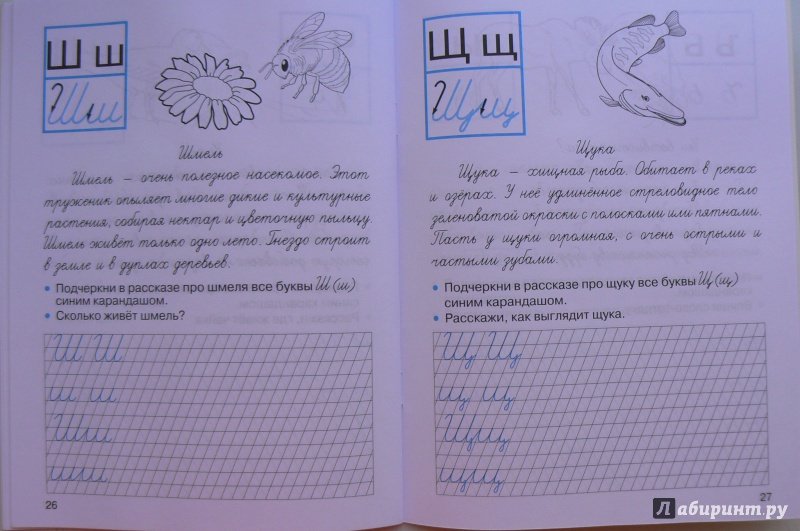 Ш ш
Шш
Шмель
Шмель – очень полезное насекомое. Этот
труженик опыляет многие дикие и культурные
растения, собирая нектар и цветочную пыльцу.
Шмель живёт только одно лето. Гнездо строит
в земле и в дуплах деревьев.
• Подчеркни в рассказе про шмеля все буквы Ш (ш)
синим карандашом.
• Сколько живёт шмель?
Ш Ш
ш ш
Шш
шш
26
Щ щ
Щщ
Щука
Щука – хищная рыба. Обитает в реках
и озёрах. У неё удлинённое стреловидное тело
зеленоватой окраски с полосками или пятнами.
Пасть у щуки огромная, с очень острыми и
частыми зубами.
• Подчеркни в рассказе про щуку все буквы Щ (щ)
синим карандашом.
• Расскажи, как выглядит щука.
Щ Щ
щ щ
Щщ
щщ
27
Лабиринт.ру